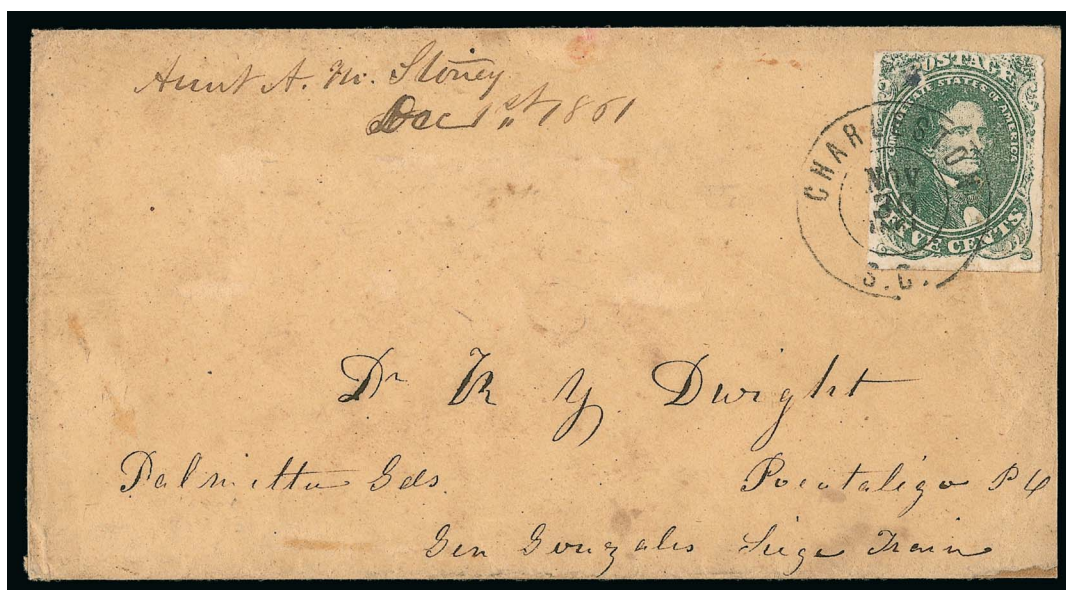 Aunt A. M. Stoney
Dec 1st 1861
POSTAGE
CONFEDERATE STATES OF AMERICA
FIVE CENTS
CHARLESTON
NOV
S.C.
Dr R Y Dwight
Palmetto Gds.
Pocotaligo P O
Gen Gonzales Siege Train